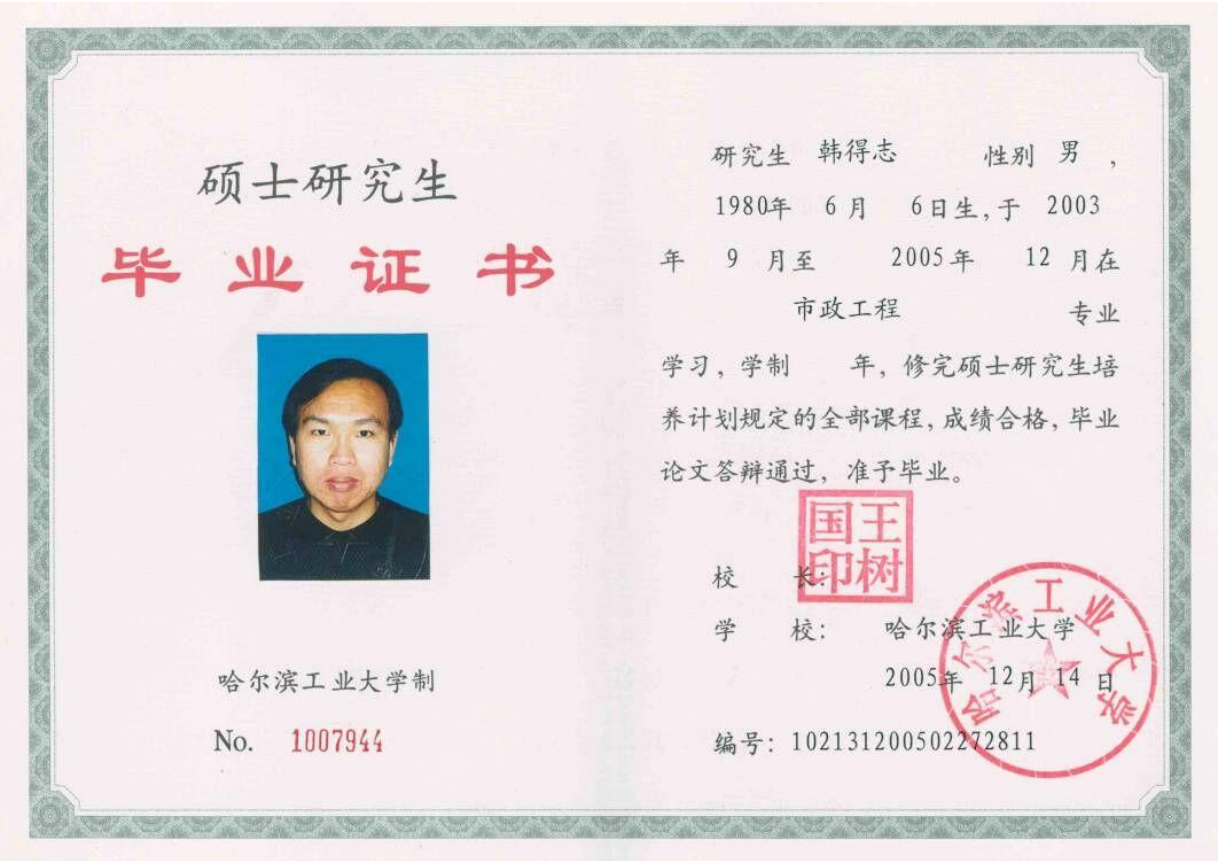 硕士研究生
毕业证书
哈尔滨工业大学制
No. 1007944
研究生 韩得志 性别 男，
1980年 6月 6日生，于 2003
年 9 月至 2005年 12 月在
市政工程 专业
学习，学制 年，修完硕士研究生培
养计划规定的全部课程，成绩合格，毕业
论文答辩通过，准予毕业。
王树国印
校 长：
学 校： 哈尔滨工业大学
2005年 12月 14 日
哈尔滨工业大学
编号：102131200502272811